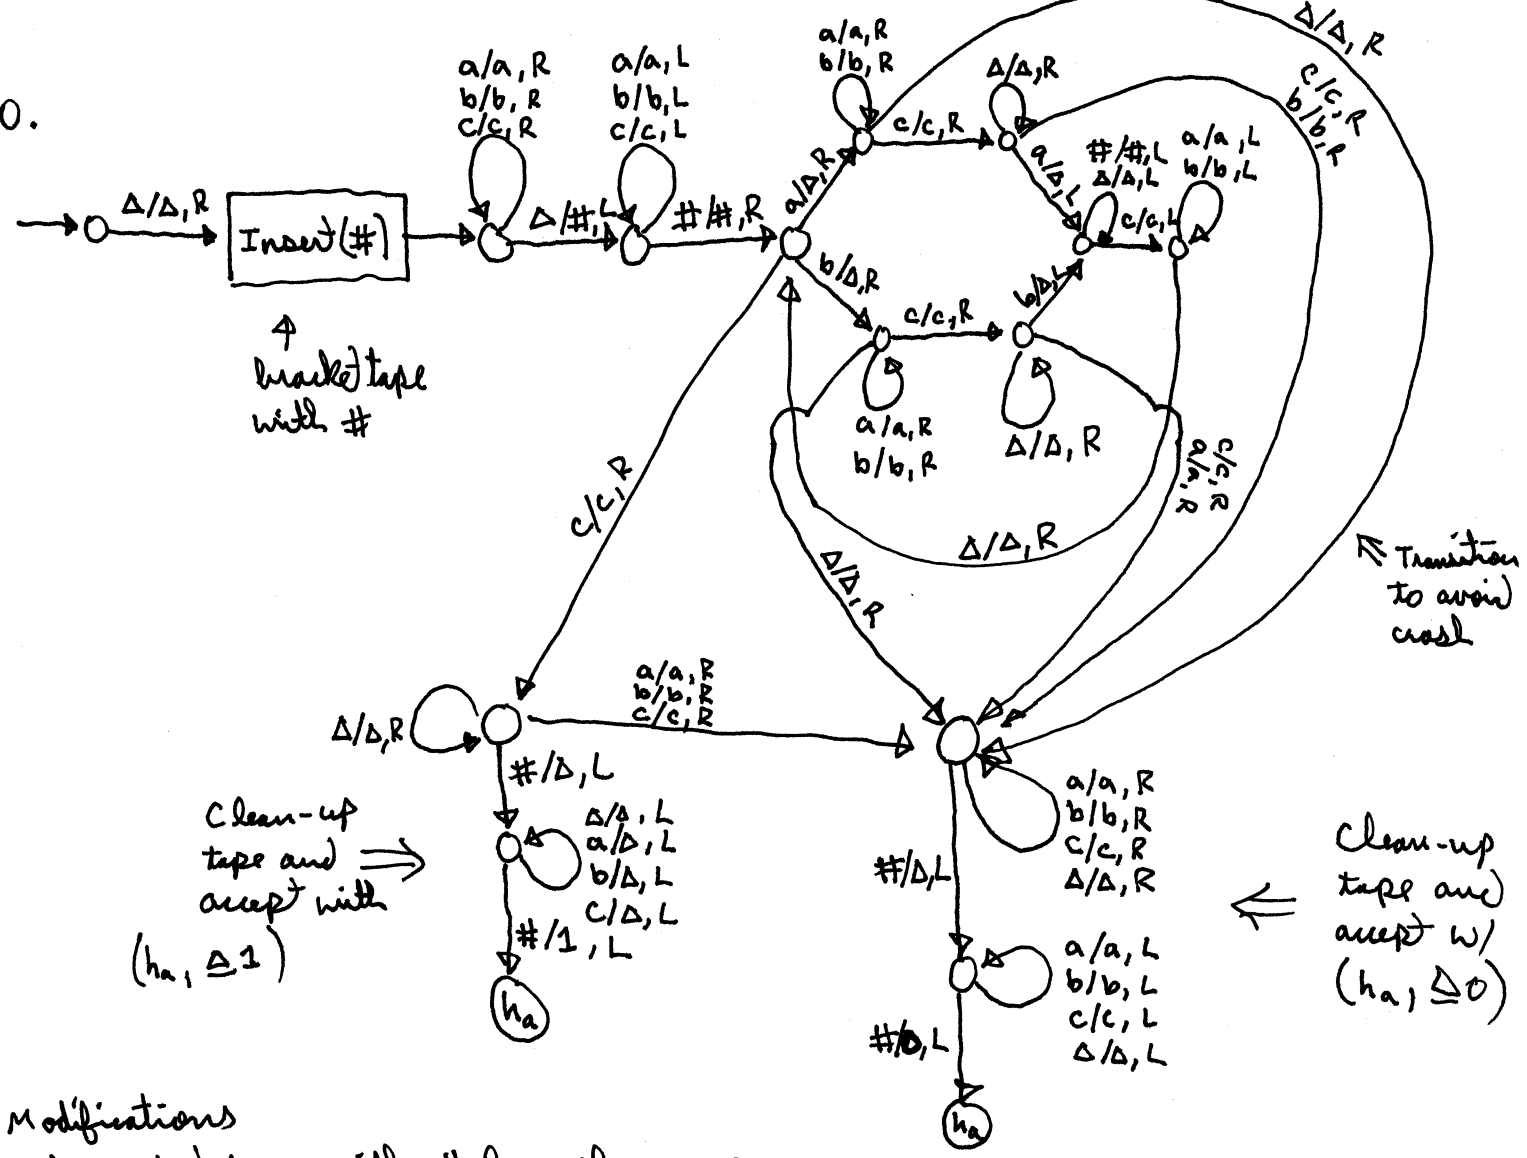 0.
Δ/Δ, R
Insert(#)
bracket tape
with #
a/a, R
b/b, R
c/c, R
Δ/#, L
a/a, L
b/b, L
c/c, L
#/#, R
a/Δ, R
a/a, R
b/b, R
c/c, R
Δ/Δ, R
Δ/Δ, R
c/c, R
b/b, R
a/Δ, L
#/#, L
Δ/Δ, L
c/c, L
a/a, L
b/b, L
b/Δ, R
c/c, R
b/Δ, L
a/a, R
b/b, R
Δ/Δ, R
c/c, R
a/a, R
Δ/Δ, R
Δ/Δ, R
c/c, R
Transition
to avoid
crash
Δ/Δ, R
a/a, R
b/b, R
c/c, R
#/Δ, L
Clean-up
tape and
accept with
(ha, Δ1)
Δ/Δ, L
a/Δ, L
b/Δ, L
c/Δ, L
#/1, L
ha
a/a, R
b/b, R
c/c, R
Δ/Δ, R
#/Δ, L
Clean-up
tape and
accept w/
(ha, Δ0)
a/a, L
b/b, L
c/c, L
Δ/Δ, L
ha
Modifications